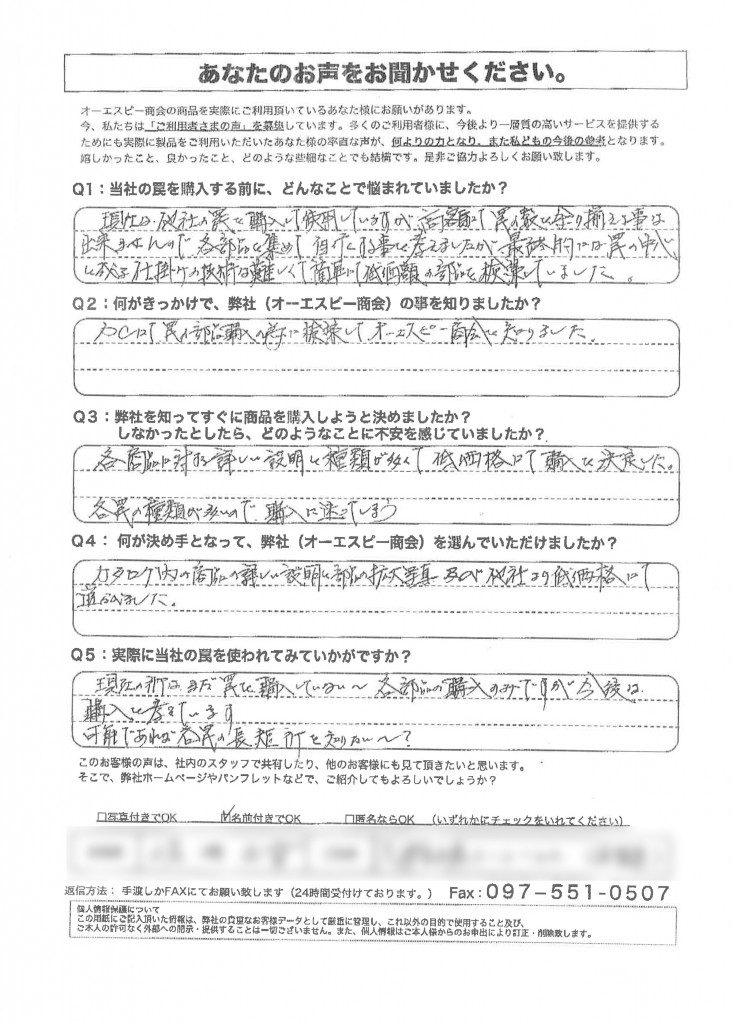 あなたのお声をお聞かせください。
オーエスピー商会の商品を実際にご利用頂いているあなた様にお願いがあります。
今、私たちは「ご利用者さまの声」を募集しています。多くのご利用者様に、今後より一層質の高いサービスを提供する
ためにも実際に製品をご利用いただいたあなた様の率直な声が、何よりの力となり、また私どもの今後の参考となります。
嬉しかったこと、良かったこと、どのような些細なことでも結構です。是非ご協力よろしくお願い致します。
Q1：当社の罠を購入する前に、どんなことで悩まれていましたか？
現在は他社の罠を購入して使用していますが高額にて罠の数を余り揃える事は
出来ませんので各部品を集めて自作する事を考えましたが最終的には罠の
仕掛けの技術は難しくて簡単にて低価額の部品を検索していました。
Q2：何がきっかけで、弊社（オーエスピー商会）の事を知りましたか？
PCにて罠の部品購入の為に検索してオーエスピー商会を知りました。
Q3：弊社を知ってすぐに商品を購入しようと決めましたか？
しなかったとしたら、どのようなことに不安を感じていましたか？
各商品に対する詳しい説明と種類が多くて低価格にて購入を決定した。
各罠の種類が多いので購入に迷ってしまう
Q4：何が決め手となって、弊社（オーエスピー商会）を選んでいただけましたか？
カタログ内の商品の詳しい説明と部品の拡大写真及び他社より低価格にて
決めました。
Q5：実際に当社の罠を使われてみていかがですか？
現在の所はまだ罠を購入していない〜各部品の購入のみですが今後は
購入を考えています
可能であれば各罠の長短所を知りたい〜？
このお客様の声は、社内のスタッフで共有したり、他のお客様にも見て頂きたいと思います。
そこで、弊社ホームページやパンフレットなどで、ご紹介してもよろしいでしょうか？
□写真付きでOK ☑名前付きでOK □匿名ならOK （いずれかにチェックをいれてください）
返信方法： 手渡しかFAXにてお願い致します（24時間受付けております。） Fax：097-551-0507
個人情報保護について
この用紙にご記入頂いた情報は、弊社の貴重なお客様データとして厳重に管理し、これ以外の目的で使用すること及び、
ご本人の許可なく外部への開示・提供することは一切ございません。また、個人情報はご本人様からのお申出により訂正・削除致します。